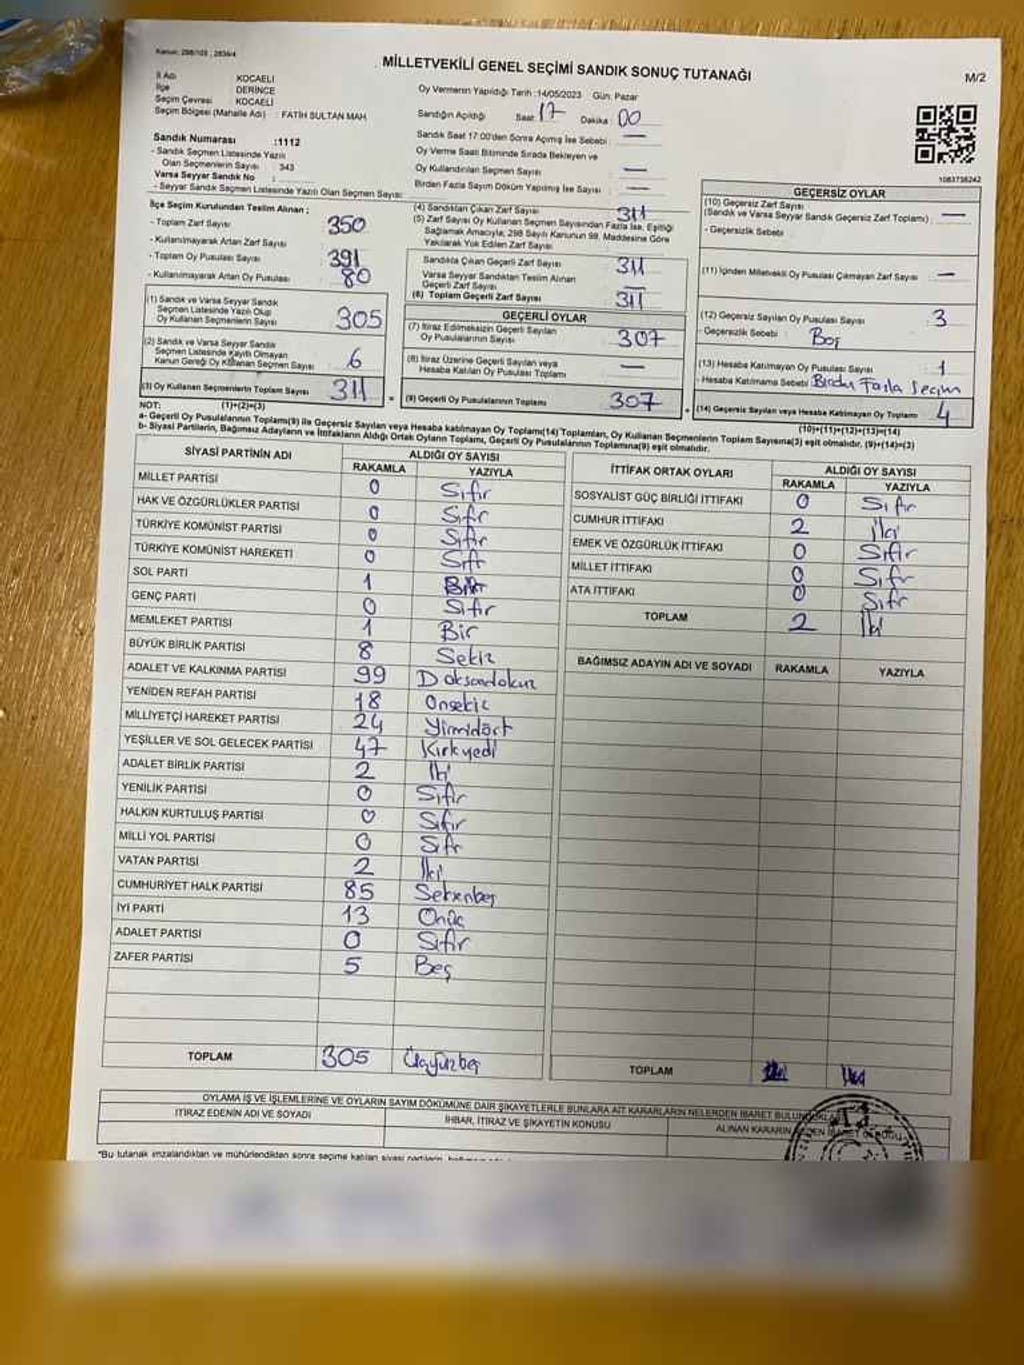 Kanun: 298/105 , 2839/4
MİLLETVEKİLİ GENEL SEÇİMİ SANDIK SONUÇ TUTANAĞI
M/2
İl Adı KOCAELİ
İlçe DERİNCE
Seçim Çevresi KOCAELİ
Seçim Bölgesi (Mahalle Adı) : FATİH SULTAN MAH
Sandık Numarası :1112
- Sandık Seçmen Listesinde Yazılı
Olan Seçmenlerin Sayısı : 343
Varsa Seyyar Sandık No :
- Seyyar Sandık Seçmen Listesinde Yazılı Olan Seçmen Sayısı:
Oy Vermenin Yapıldığı Tarih :14/05/2023 Gün: Pazar
Sandığın Açıldığı Saat: 17 Dakika: 00
Sandık Saat 17:00'den Sonra Açılmış İse Sebebi : —
Oy Verme Saati Bitiminde Sırada Bekleyen ve
Oy Kullandırılan Seçmen Sayısı —
Birden Fazla Sayım Döküm Yapılmış İse Sayısı : —
1083738242
İlçe Seçim Kurulundan Teslim Alınan :
- Toplam Zarf Sayısı 350
- Kullanılmayarak Artan Zarf Sayısı
- Toplam Oy Pusulası Sayısı 391
- Kullanılmayarak Artan Oy Pusulası 80
(1) Sandık ve Varsa Seyyar Sandık
Seçmen Listesinde Yazılı Olup
Oy Kullanan Seçmenlerin Sayısı 305
(2) Sandık ve Varsa Seyyar Sandık
Seçmen Listesinde Kayıtlı Olmayan
Kanun Gereği Oy Kullanan Seçmen Sayısı 6
(3) Oy Kullanan Seçmenlerin Toplam Sayısı 311
(1)+(2)=(3)
(4) Sandıktan Çıkan Zarf Sayısı 311
(5) Zarf Sayısı Oy Kullanan Seçmen Sayısından Fazla İse, Eşitliği
Sağlamak Amacıyla; 298 Sayılı Kanunun 99. Maddesine Göre
Yakılarak Yok Edilen Zarf Sayısı
Sandıkta Çıkan Geçerli Zarf Sayısı 311
Varsa Seyyar Sandıktan Teslim Alınan
Geçerli Zarf Sayısı —
(6) Toplam Geçerli Zarf Sayısı 311
GEÇERLİ OYLAR
(7) İtiraz Edilmeksizin Geçerli Sayılan
Oy Pusulalarının Sayısı 307
(8) İtiraz Üzerine Geçerli Sayılan veya
Hesaba Katılan Oy Pusulası Toplamı —
(9) Geçerli Oy Pusulalarının Toplamı 307
GEÇERSİZ OYLAR
(10) Geçersiz Zarf Sayısı
(Sandık ve Varsa Seyyar Sandık Geçersiz Zarf Toplamı) : —
- Geçersizlik Sebebi
(11) İçinden Milletvekili Oy Pusulası Çıkmayan Zarf Sayısı —
(12) Geçersiz Sayılan Oy Pusulası Sayısı 3
- Geçersizlik Sebebi : Boş
(13) Hesaba Katılmayan Oy Pusulası Sayısı 1
- Hesaba Katılmama Sebebi Birden Fazla Seçim
(14) Geçersiz Sayılan veya Hesaba Katılmayan Oy Toplamı 4
(10)+(11)+(12)+(13)=(14)
NOT:
a- Geçerli Oy Pusulalarının Toplamı(9) ile Geçersiz Sayılan veya Hesaba Katılmayan Oy Toplamı(14) Toplamları, Oy Kullanan Seçmenlerin Toplam Sayısına(3) eşit olmalıdır. (9)+(14)=(3)
b- Siyasi Partilerin, Bağımsız Adayların ve İttifakların Aldığı Ortak Oyların Toplamı, Geçerli Oy Pusulalarının Toplamına(9) eşit olmalıdır.
SİYASİ PARTİNİN ADI ALDIĞI OY SAYISI
RAKAMLA YAZIYLA
MİLLET PARTİSİ 0 Sıfır
HAK VE ÖZGÜRLÜKLER PARTİSİ 0 Sıfır
TÜRKİYE KOMÜNİST PARTİSİ 0 Sıfır
TÜRKİYE KOMÜNİST HAREKETİ 0 Sıfır
SOL PARTİ 1 Bir
GENÇ PARTİ 0 Sıfır
MEMLEKET PARTİSİ 1 Bir
BÜYÜK BİRLİK PARTİSİ 8 Sekiz
ADALET VE KALKINMA PARTİSİ 99 Doksandokuz
YENİDEN REFAH PARTİSİ 18 Onsekiz
MİLLİYETÇİ HAREKET PARTİSİ 24 Yirmidört
YEŞİLLER VE SOL GELECEK PARTİSİ 47 Kırkyedi
ADALET BİRLİK PARTİSİ 2 İki
YENİLİK PARTİSİ 0 Sıfır
HALKIN KURTULUŞ PARTİSİ 0 Sıfır
MİLLİ YOL PARTİSİ 0 Sıfır
VATAN PARTİSİ 2 İki
CUMHURİYET HALK PARTİSİ 85 Seksenbeş
İYİ PARTİ 13 Onüç
ADALET PARTİSİ 0 Sıfır
ZAFER PARTİSİ 5 Beş
TOPLAM 305 Üçyüzbeş
İTTİFAK ORTAK OYLARI ALDIĞI OY SAYISI
RAKAMLA YAZIYLA
SOSYALİST GÜÇ BİRLİĞİ İTTİFAKI 0 Sıfır
CUMHUR İTTİFAKI 2 İki
EMEK VE ÖZGÜRLÜK İTTİFAKI 0 Sıfır
MİLLET İTTİFAKI 0 Sıfır
ATA İTTİFAKI 0 Sıfır
TOPLAM 2 İki
BAĞIMSIZ ADAYIN ADI VE SOYADI RAKAMLA YAZIYLA
TOPLAM
OYLAMA İŞ VE İŞLEMLERİNE VE OYLARIN SAYIM DÖKÜMÜNE DAİR ŞİKAYETLERLE BUNLARA AİT KARARLARIN NELERDEN İBARET BULUNDUKLARI
İTİRAZ EDENİN ADI VE SOYADI İHBAR, İTİRAZ VE ŞİKAYETİN KONUSU ALINAN KARARIN NEDEN İBARET OLDUĞU
*Bu tutanak imzalandıktan ve mühürlendikten sonra seçime katılan siyasi partilerin,